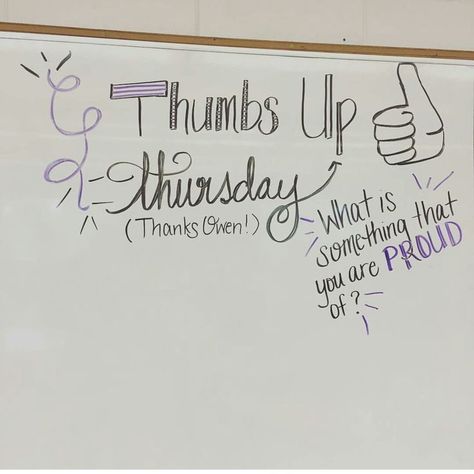 Thumbs Up
Thursday
(Thanks Owen!)
What is
something that
you are PROUD
of?